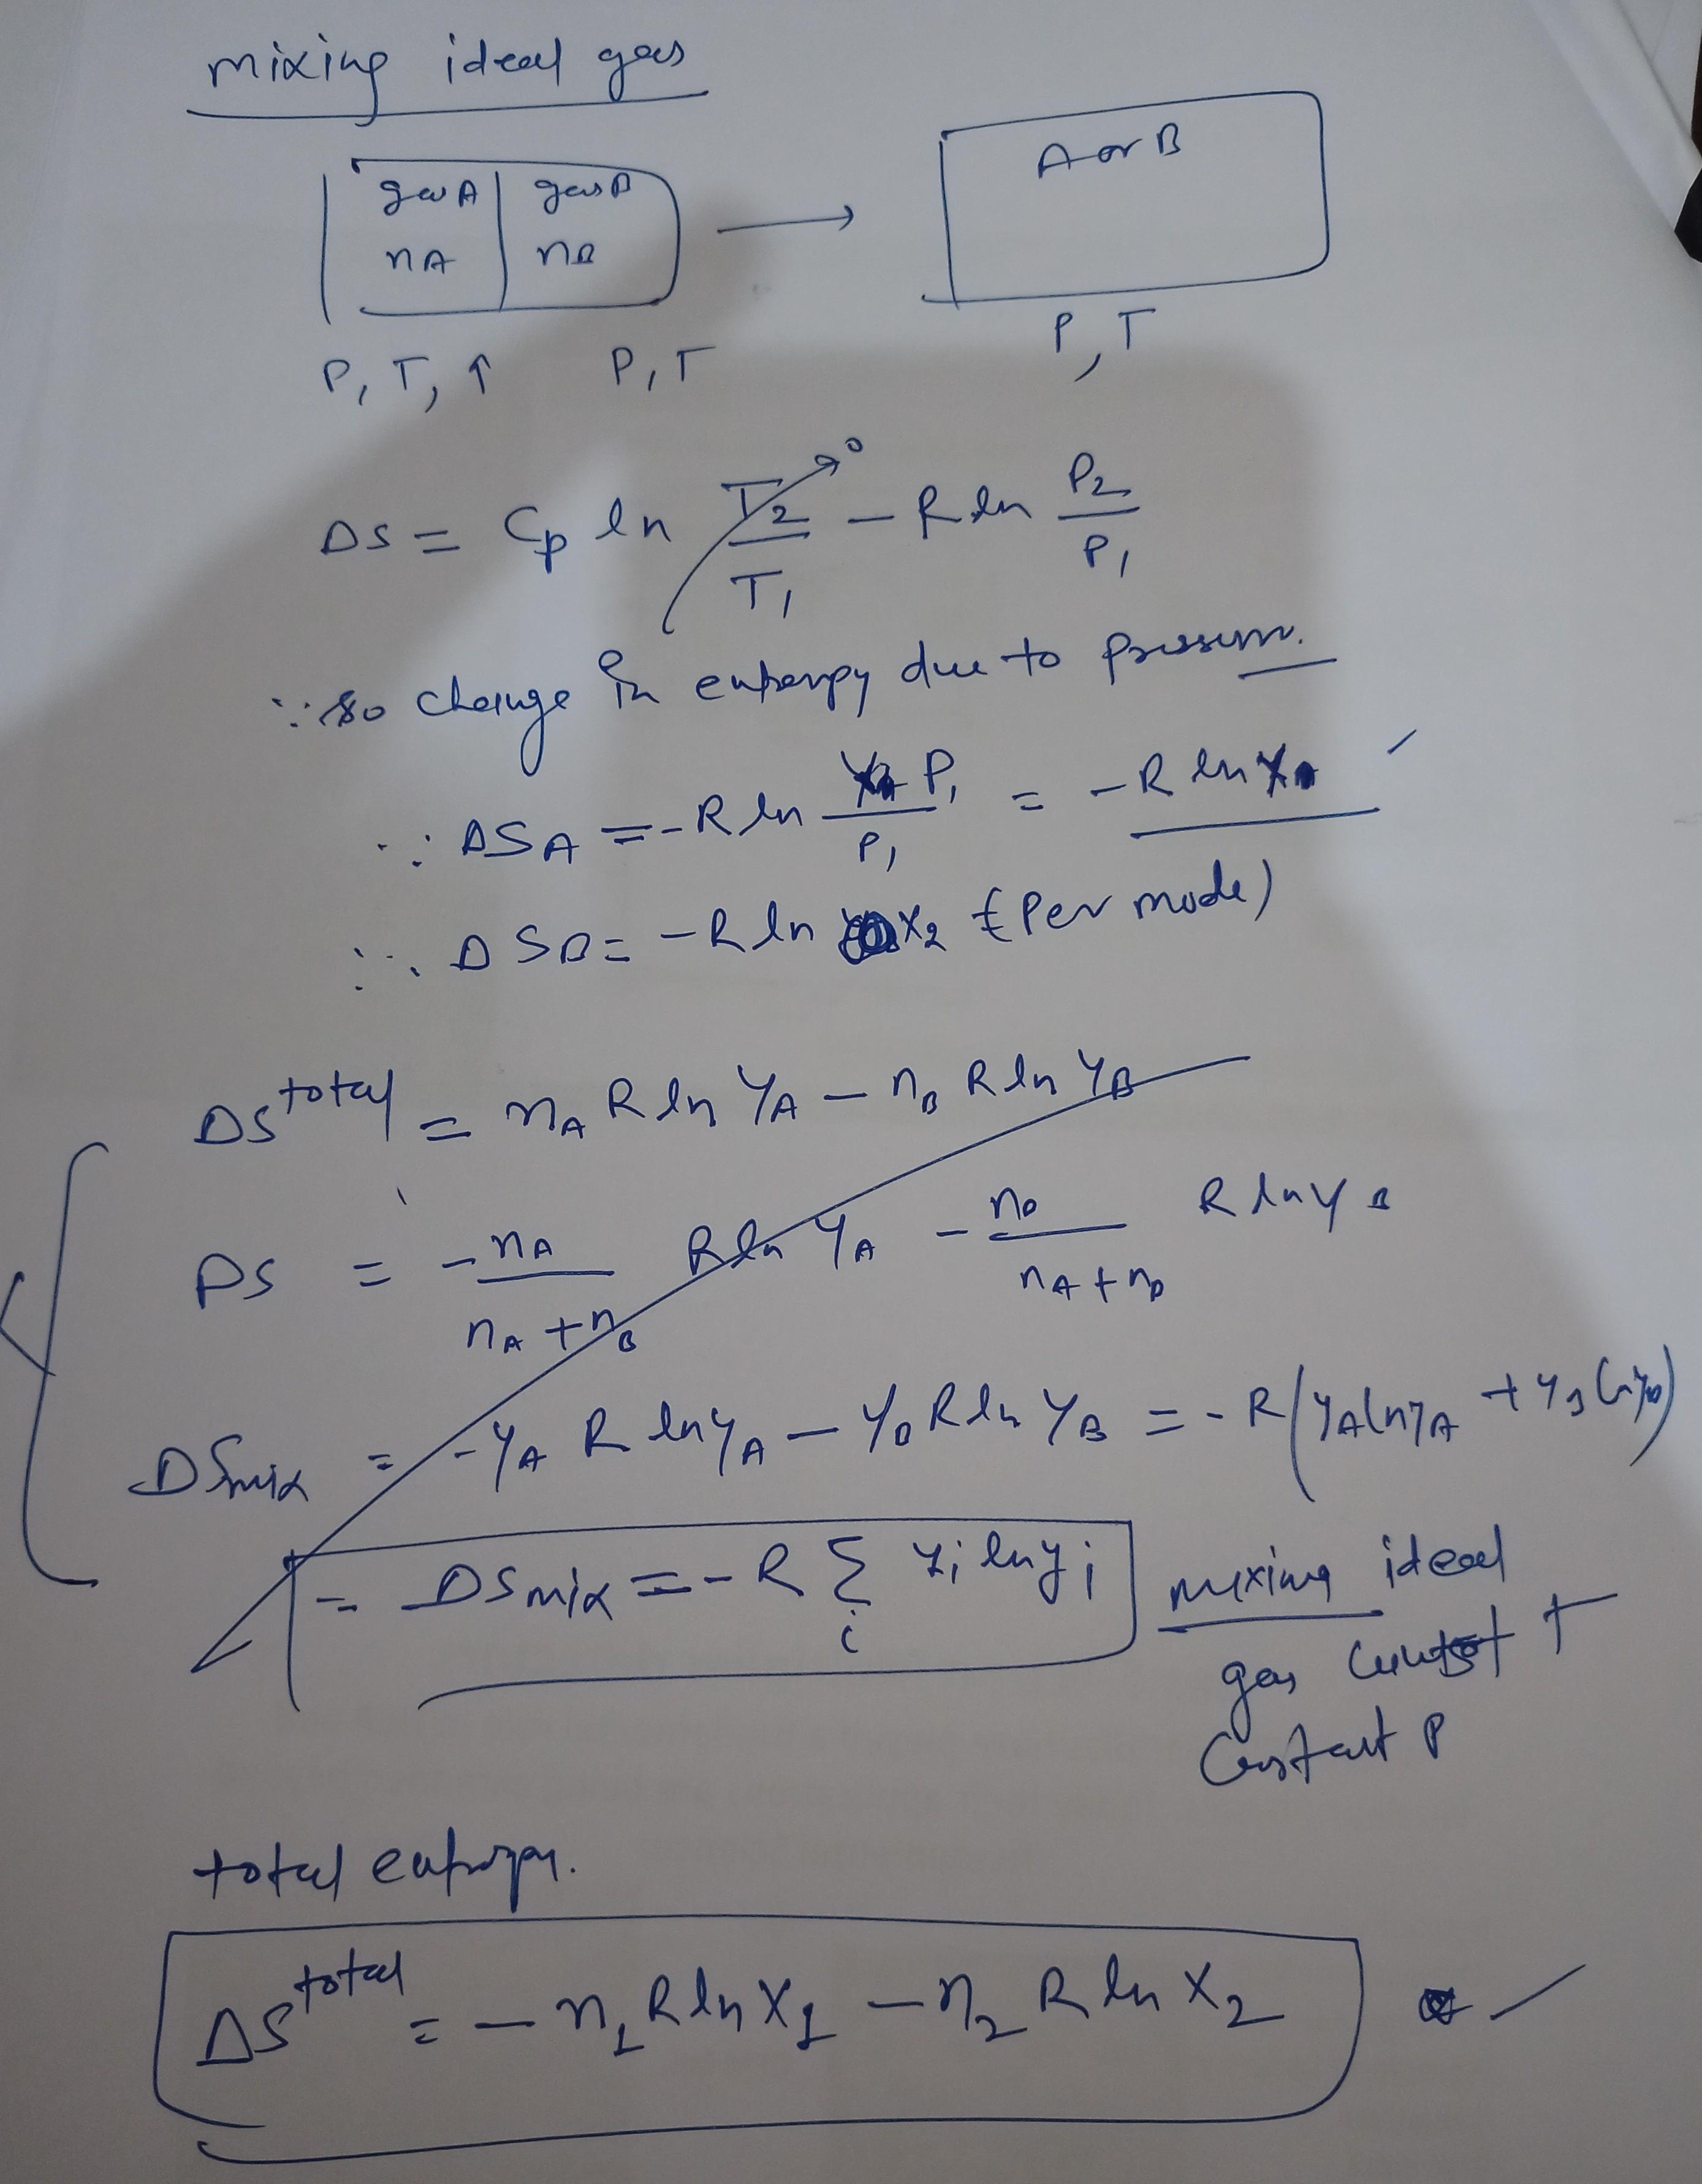 mixing ideal gas
gas A gas B
nA nB
A or B
P, T, ↑ P, T
P, T
ΔS = Cp ln T2/T1 → 0 - R ln P2/P1
∵ so change in entropy due to pressure.
∴ ΔSA = -R ln P1/P1 = -R ln
∴ ΔSB = -R ln X2 (Per mole)
ΔS total = nA R ln YA - nB R ln YB
ΔS = -nA/nA+nB R ln YA - nB/nA+nB R ln YB
ΔSmix = -YA R ln YA - YB R ln YB = -R(YA ln YA + YB ln YB)
= ΔSmix = -R Σi yi ln yi
mixing ideal
gas const T
Constant P
total entropy.
ΔS total = - n1 R ln X1 - n2 R ln X2